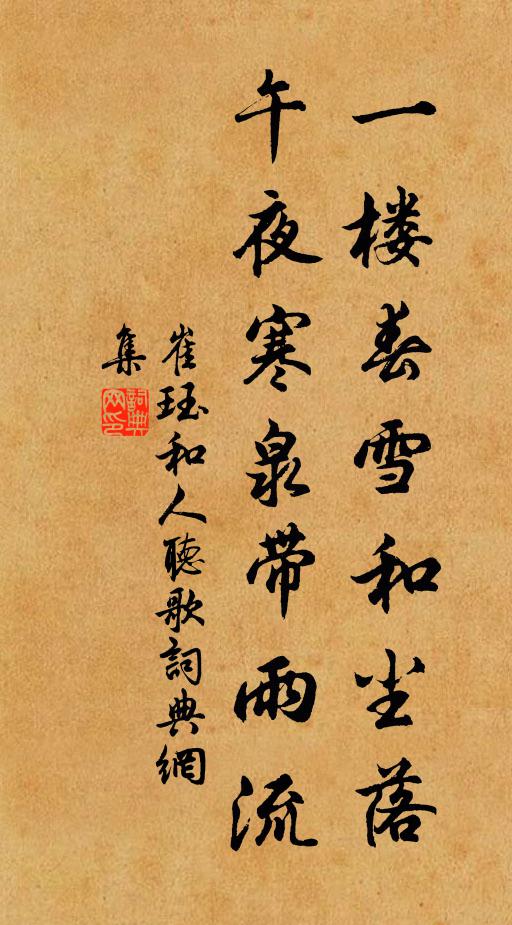 一楼春雪和尘落
午夜寒泉带雨流
崔珏和人聽歌詞典網
集
詞典
网印